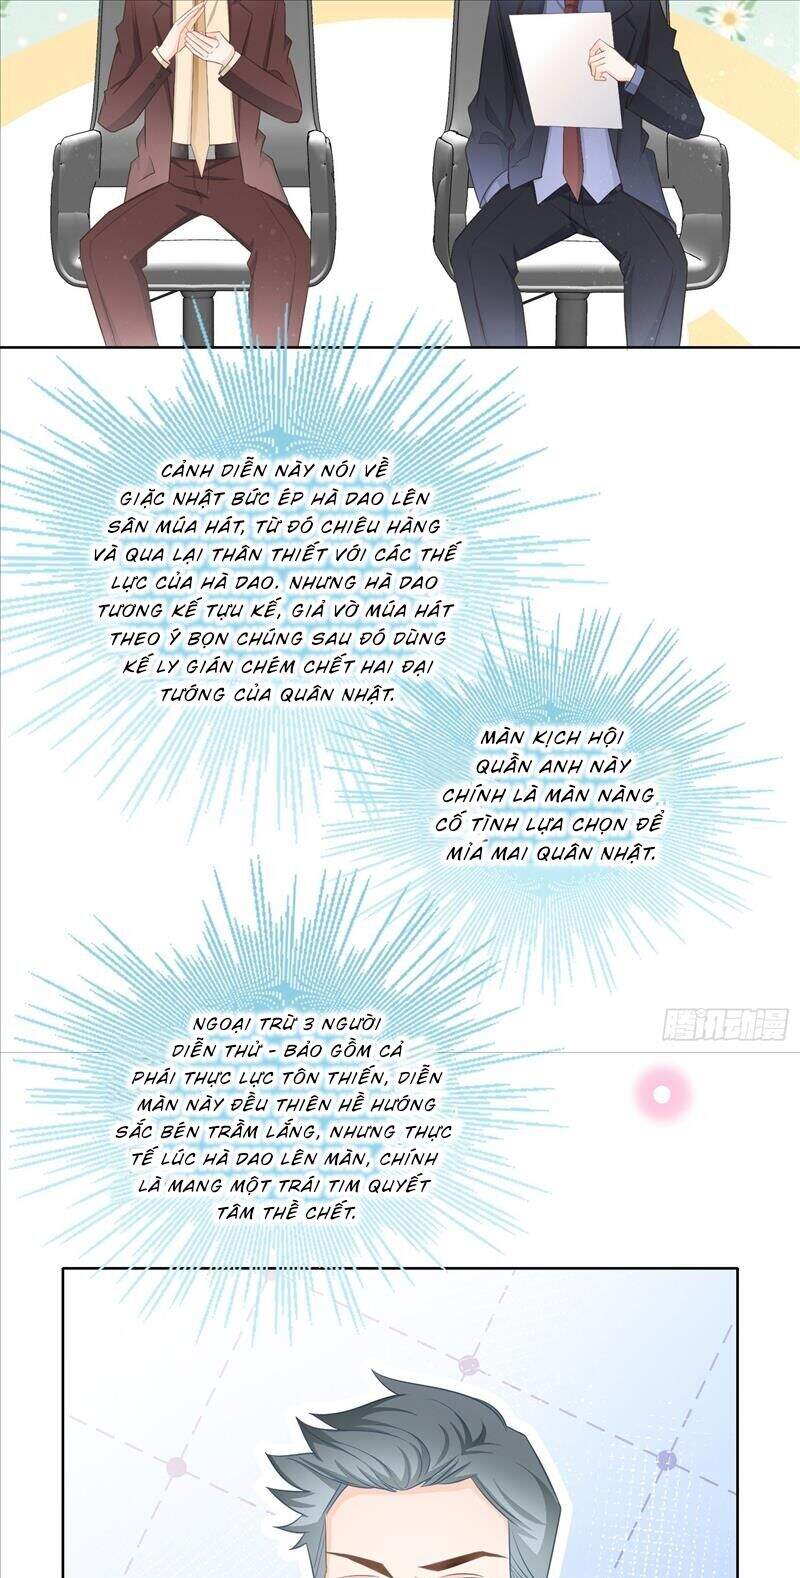 CẢNH DIỄN NÀY NÓI VỀ
GIẶC NHẬT BỨC ÉP HÀ DAO LÊN
SÂN MÚA HÁT, TỪ ĐÓ CHIÊU HÀNG
VÀ QUA LẠI THÂN THIẾT VỚI CÁC THẾ
LỰC CỦA HÀ DAO. NHƯNG HÀ DAO
TƯƠNG KẾ TỰU KẾ, GIẢ VỜ MÚA HÁT
THEO Ý BỌN CHÚNG SAU ĐÓ DÙNG
KẾ LY GIÁN CHÉM CHẾT HAI ĐẠI
TƯỚNG CỦA QUÂN NHẬT.
MÀN KỊCH HỘI
QUẦN ANH NÀY
CHÍNH LÀ MÀN NÀNG
CỐ TÌNH LỰA CHỌN ĐỂ
MỈA MAI QUÂN NHẬT.
NGOẠI TRỪ 3 NGƯỜI
DIỄN THỬ - BẢO GỒM CẢ
PHÁI THỰC LỰC TÔN THIẾN, DIỄN
MÀN NÀY ĐỀU THIÊN HỀ HƯỚNG
SẮC BÉN TRẦM LẮNG, NHƯNG THỰC
TẾ LÚC HÀ DAO LÊN MÀN, CHÍNH
LÀ MANG MỘT TRÁI TIM QUYẾT
TÂM THỀ CHẾT.
腾讯动漫